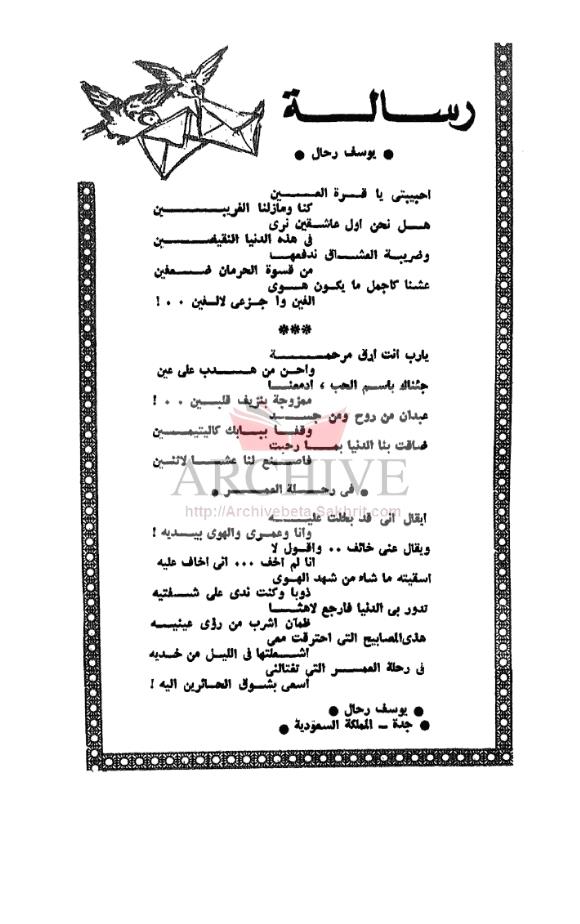 رسالة
● يوسف رحال ●
احبيبتى يا قرة العين
كنا ومازلنا الغريبين
هل نحن اول عاشقين نرى
فى هذه الدنيا النقيضين
وضريبة العشاق ندفعها
من قسوة الحرمان ضعفين
عشنا كاجمل ما يكون هوى
الفين وا جزعى لالفين . . !
***
يارب انت ارق مرحمة
واحن من هدب على عين
جئناك باسم الحب ، ادمعنا
ممزوجة بنزيف قلبين . . !
عبدان من روح ومن جسد
وقفا ببابك كاليتيمين
ضاقت بنا الدنيا بما رحبت
فاصنع لنا عشا لاثنين
ARCHIVE
● فى رحلة العمر ●
http://Archivebeta.Sakhrit.com
ايقال انى قد بخلت عليه
وانا وعمرى والهوى بيديه !
ويقال عنى خائف .. واقول لا
انا لم اخف ... انى اخاف عليه
اسقيته ما شاء من شهد الهوى
ذوبا وكنت ندى على شفتيه
تدور بى الدنيا فارجع لاهثا
ظمان اشرب من رؤى عينيه
هذى المصابيح التى احترقت معى
اشعلتها فى الليل من خديه
فى رحلة العمر التى تغتالنى
اسعى بشوق الحائرين اليه !
● يوسف رحال ●
● جدة ــ المملكة السعودية ●